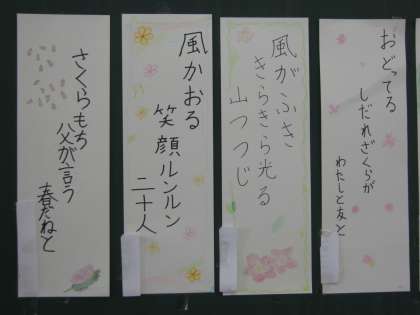 おどってる
しだれざくらが
わたしと友と
風がふき
きらきら光る
山つつじ
風かおる
笑顔ルンルン
二十人
さくらもち
父が言う
春だねと